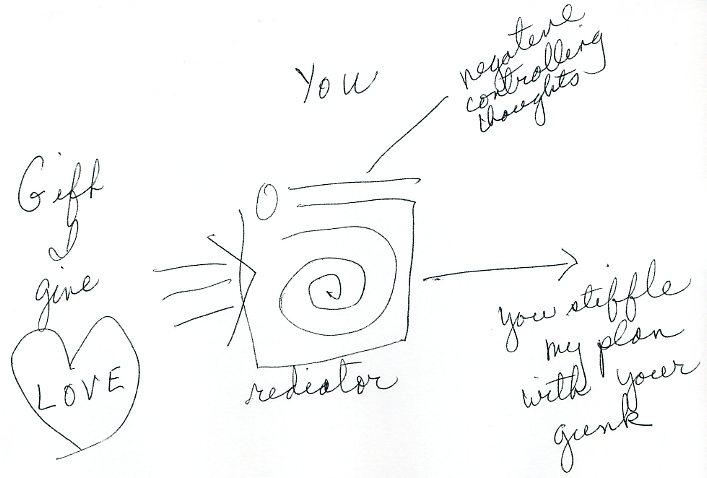 You
negative
controlling
thoughts
Gift
I
give
LOVE
rediator
you stiffle
my plan
with your
gunk